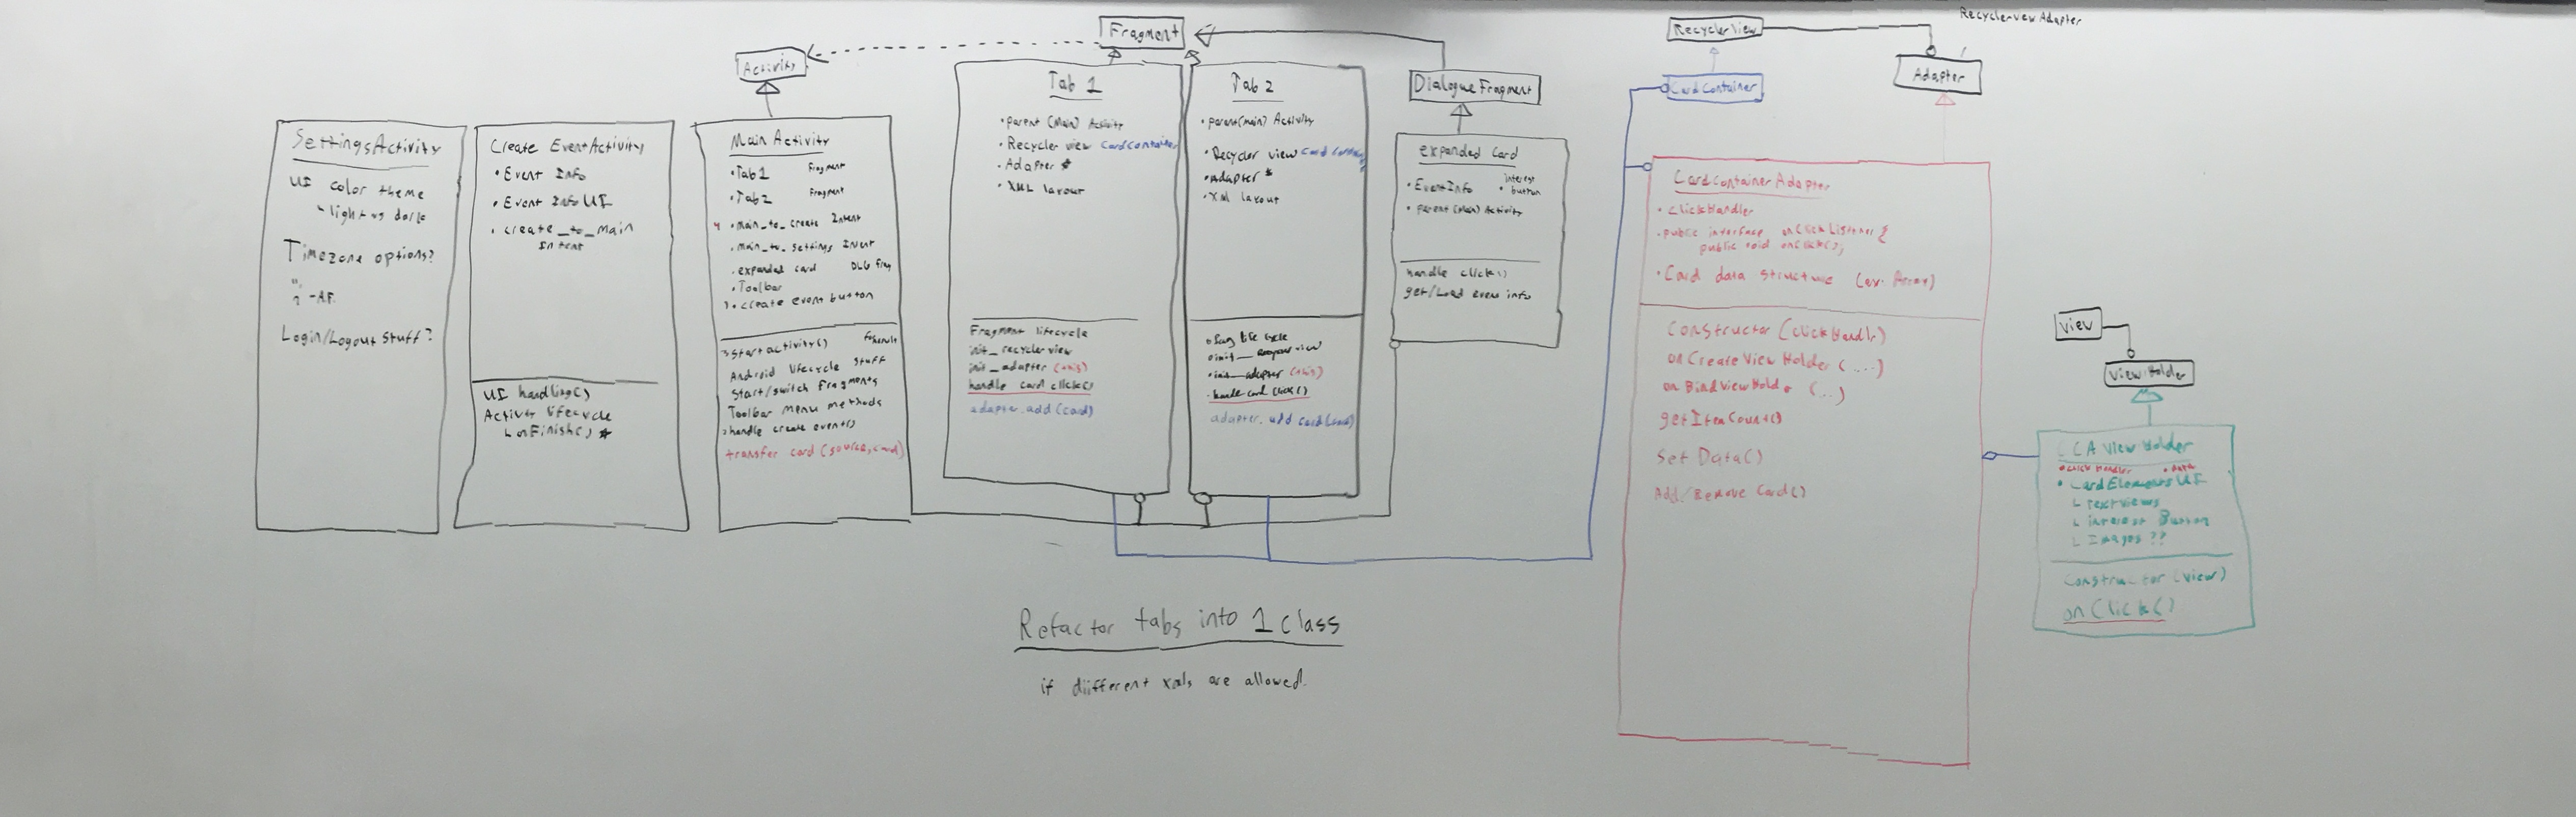 SettingsActivity
UI color theme
- light vs dark
Timezone options?
? -A.F.
Login/Logout stuff?
Create EventActivity
• Event Info
• Event Info UI
• create_to_main
Intent
UI handling()
Activity lifecycle
L onFinish() *
Activity
Main Activity
• Tab1 fragment
• Tab2 fragment
• main_to_create Intent
• main_to_settings Intent
• expanded card DLG frag
• Toolbar
• create event button
startactivity() forResult
Android lifecycle stuff
start/switch fragments
Toolbar menu methods
handle create event()
transfer card (source, card)
Fragment
Tab 1
• parent (Main) Activity
• Recycler view CardContainer
• Adapter *
• XML layout
Fragment lifecycle
init_recycler view
init_adapter (this)
handle card click()
adapter.add (card)
Tab 2
• parent(main) Activity
• Recycler view Card Container
• Adapter *
• XML layout
• frag life cycle
• init_recycler view
• init_adapter (this)
• handle card click()
adapter.add card(card)
DialogueFragment
expanded card
• EventInfo
• interest button
• parent (Main) Activity
handle click()
get/Load event info
Refactor tabs into 1 class
if diifferent xmls are allowed.
RecyclerView
RecyclerviewAdapter
Adapter
CardContainer
CardContainerAdapter
• ClickHandler
• public interface onClickListener {
public void onClick();
• Card data structure (ex. Array)
Constructor (clickHandlr)
onCreate View Holder (....)
on BindViewHolder (...)
getItemCount()
Set Data()
Add/Remove Card()
View
ViewHolder
CCA ViewHolder
• click Handler • data
• CardElements UI
L textviews
L interest Button
L Images ??
Constructor (view)
onClick()